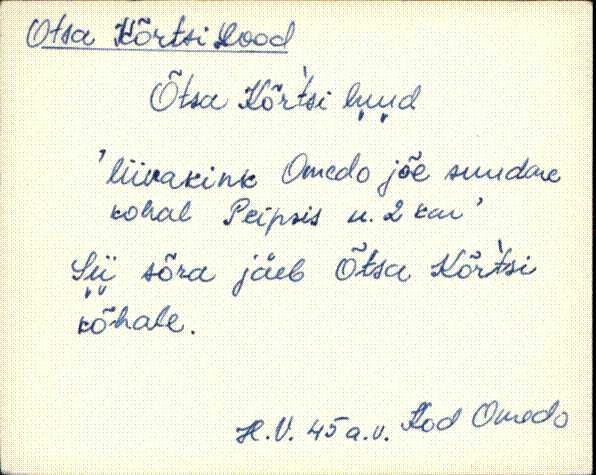 Otsa Kõrtsi Lood
Õtsa Kõr̀tsi luud
'liivakink Omedo jõe suudme
kohal Peipsis u. 2 km'
Sii sõra jäeb Õtsa Kõr̀tsi
kõhale.
H.V. 45 a.v. Kod Omedo